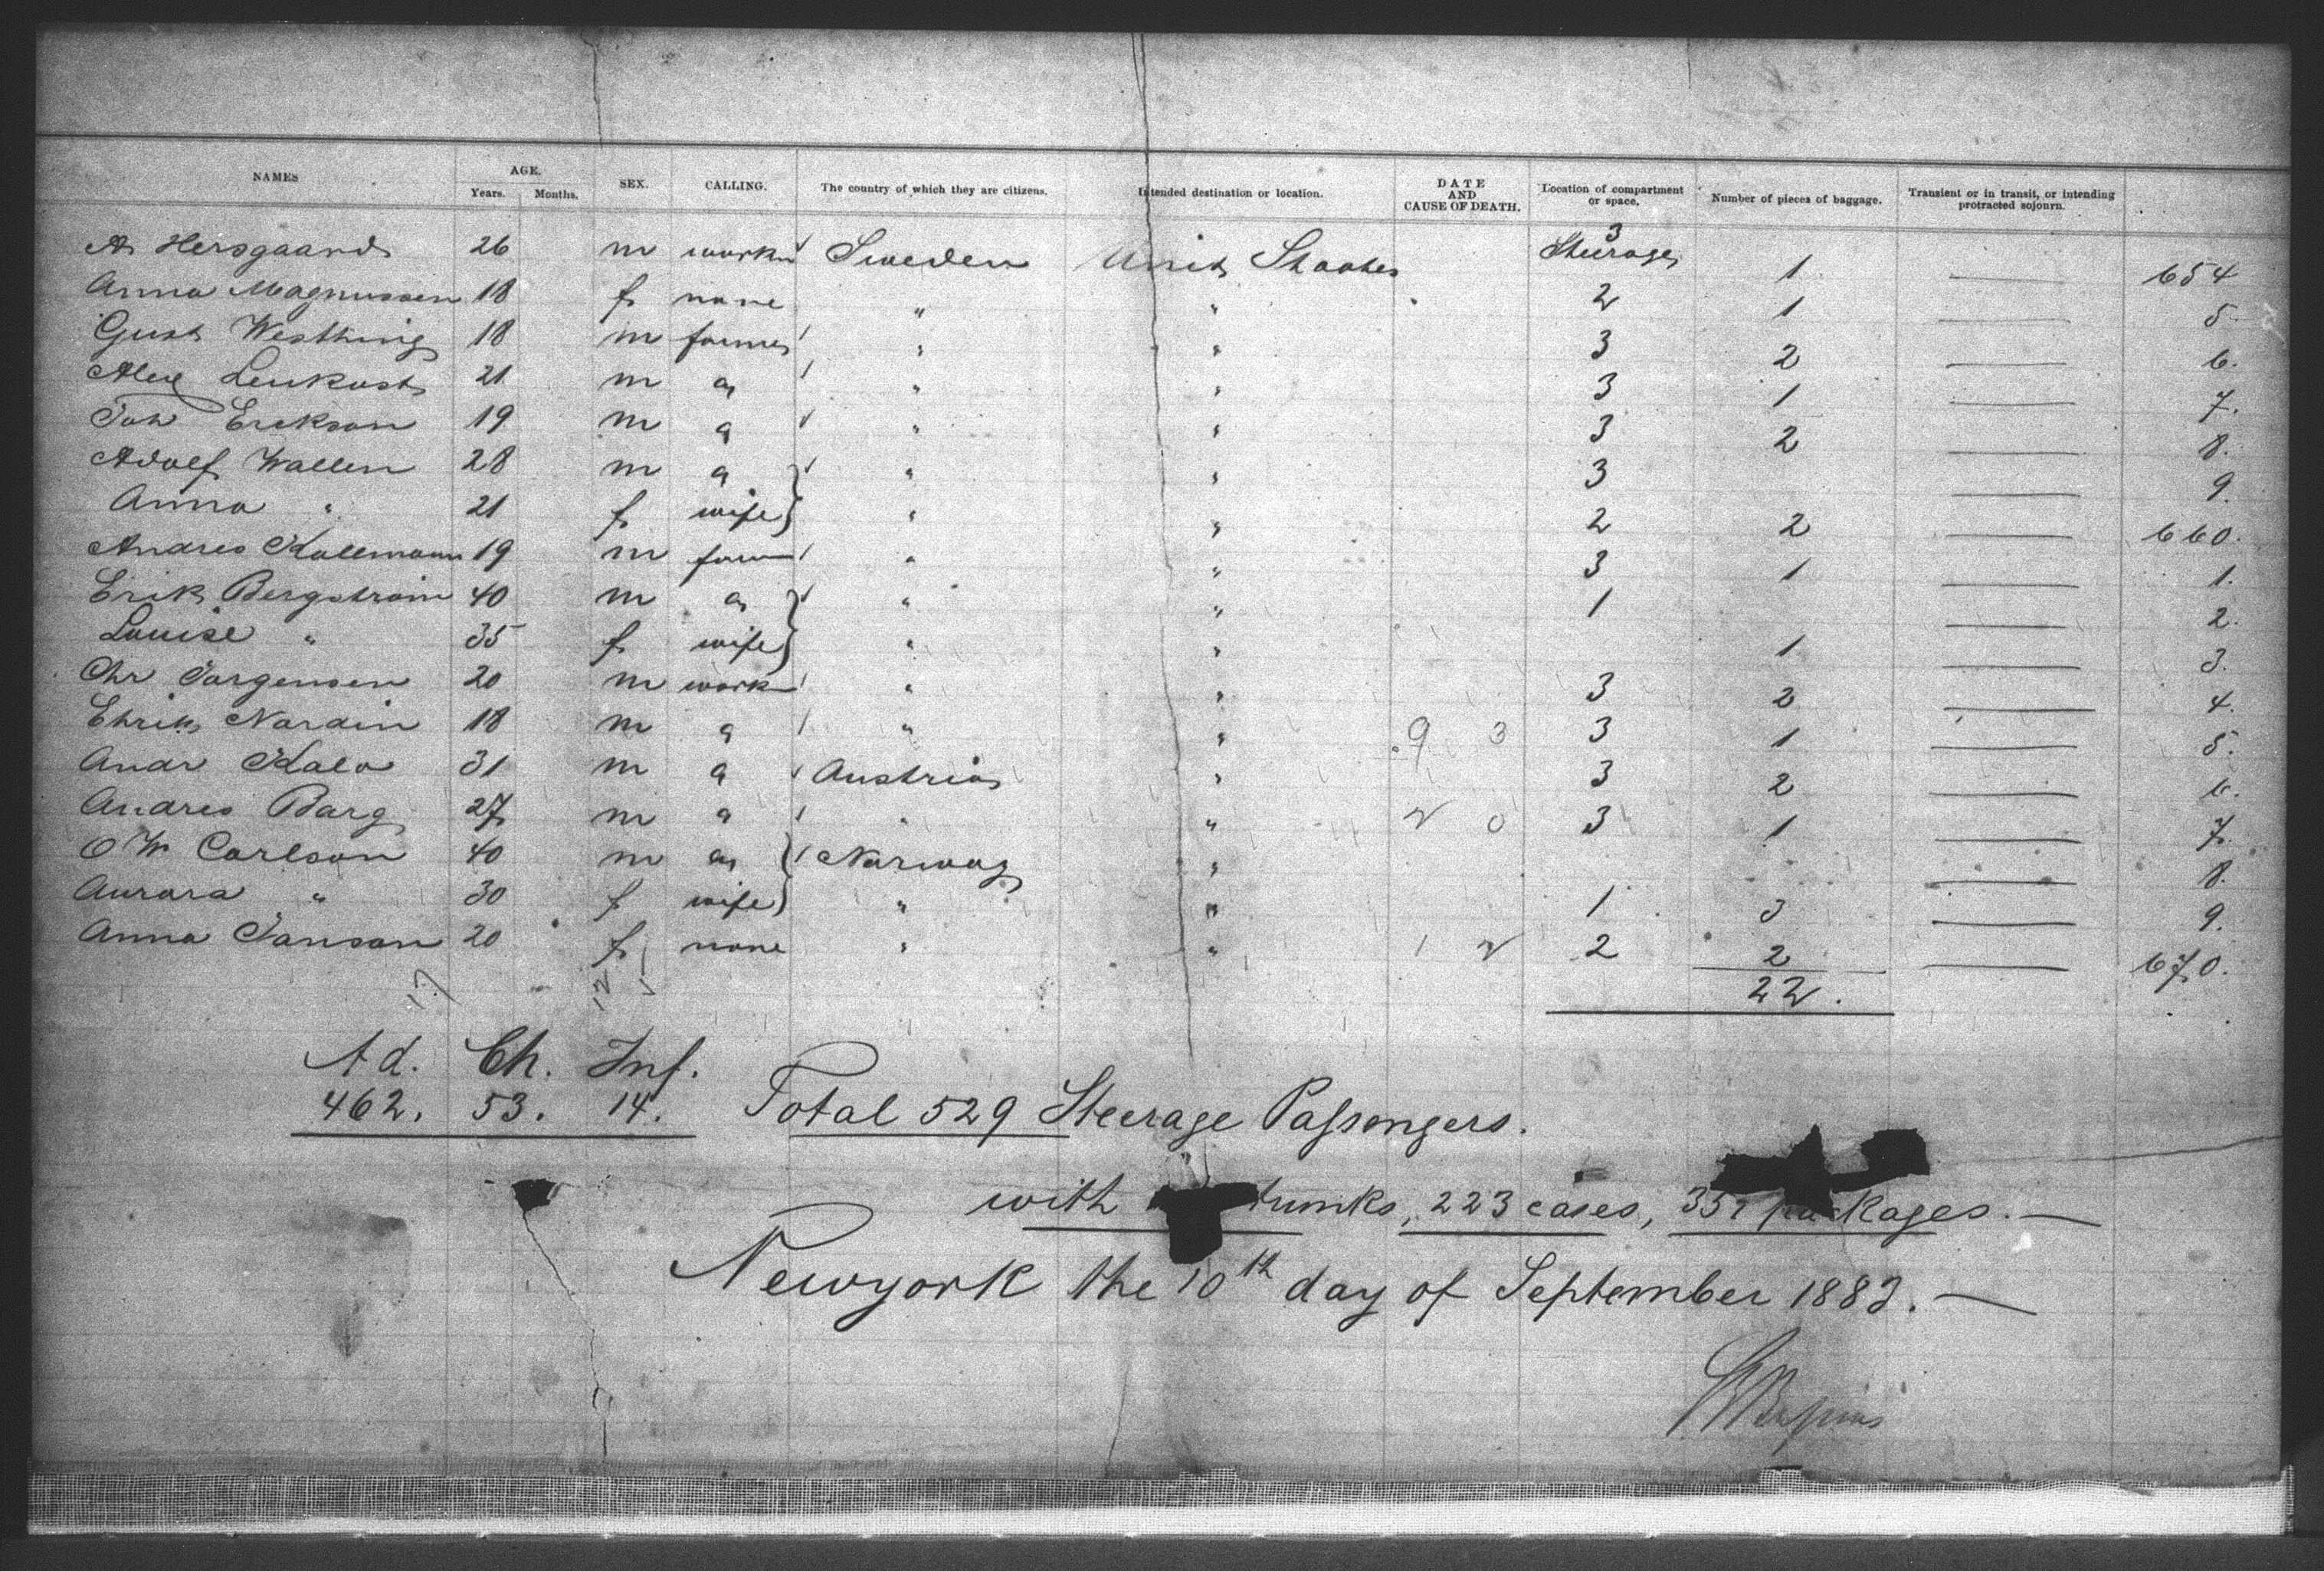 NAMES AGE. SEX. CALLING. The country of which they are citizens. Intended destination or location. DATE AND CAUSE OF DEATH. Location of compartment or space. Number of pieces of baggage. Transient or in transit, or intending protracted sojourn.
Years. Months.
A Hersgaard 26 m work Sweden Unit Staates 3 Steerage 1 — 654
Anna Magnussen 18 f none " " 2 1 — 5.
Gust Westhing 18 m farmer " " 3 2 — 6.
Alex 21 m a " " 3 1 — 7.
Joh Erekson 19 m a " " 3 2 — 8.
Adolf Wallen 28 m a " " 3 — 9.
Anna " 21 f wife " " 2 2 — 660.
Andres Kallemann 19 m farm " " 3 1 — 1.
Erik Bergstrom 40 m a " " 1 — 2.
Louise " 35 f wife " " 1 — 3.
Chr Jorgensen 20 m work " " 3 2 — 4.
Ehrik Nordin 18 m a " " 9 3 3 1 — 5.
Andr Kalo 31 m a Austria " 3 2 — 6.
Andres Barg 27 m a " " 2 0 3 1 — 7.
O W Carlson 40 m a Norway " — 8.
Aurora " 30 f wife " " 1 3 — 9.
Anna Janson 20 f none " " 1 2 2 2 — 670.
17 12 5 22.
Ad. Ch. Inf.
462. 53. 14. Total 529 Steerage Passengers.
with trunks, 223 cases, packages. —
Newyork the 10th day of September 1883. —